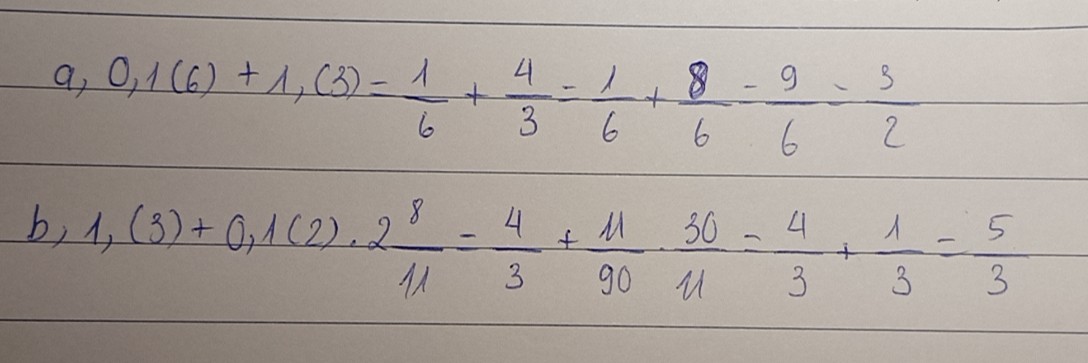 a, 0,1(6) + 1,(3) = 1/6 + 4/3 = 1/6 + 8/6 = 9/6 = 3/2
b, 1,(3) + 0,1(2) . 2 8/11 = 4/3 + 11/90 . 30/11 = 4/3 + 1/3 = 5/3